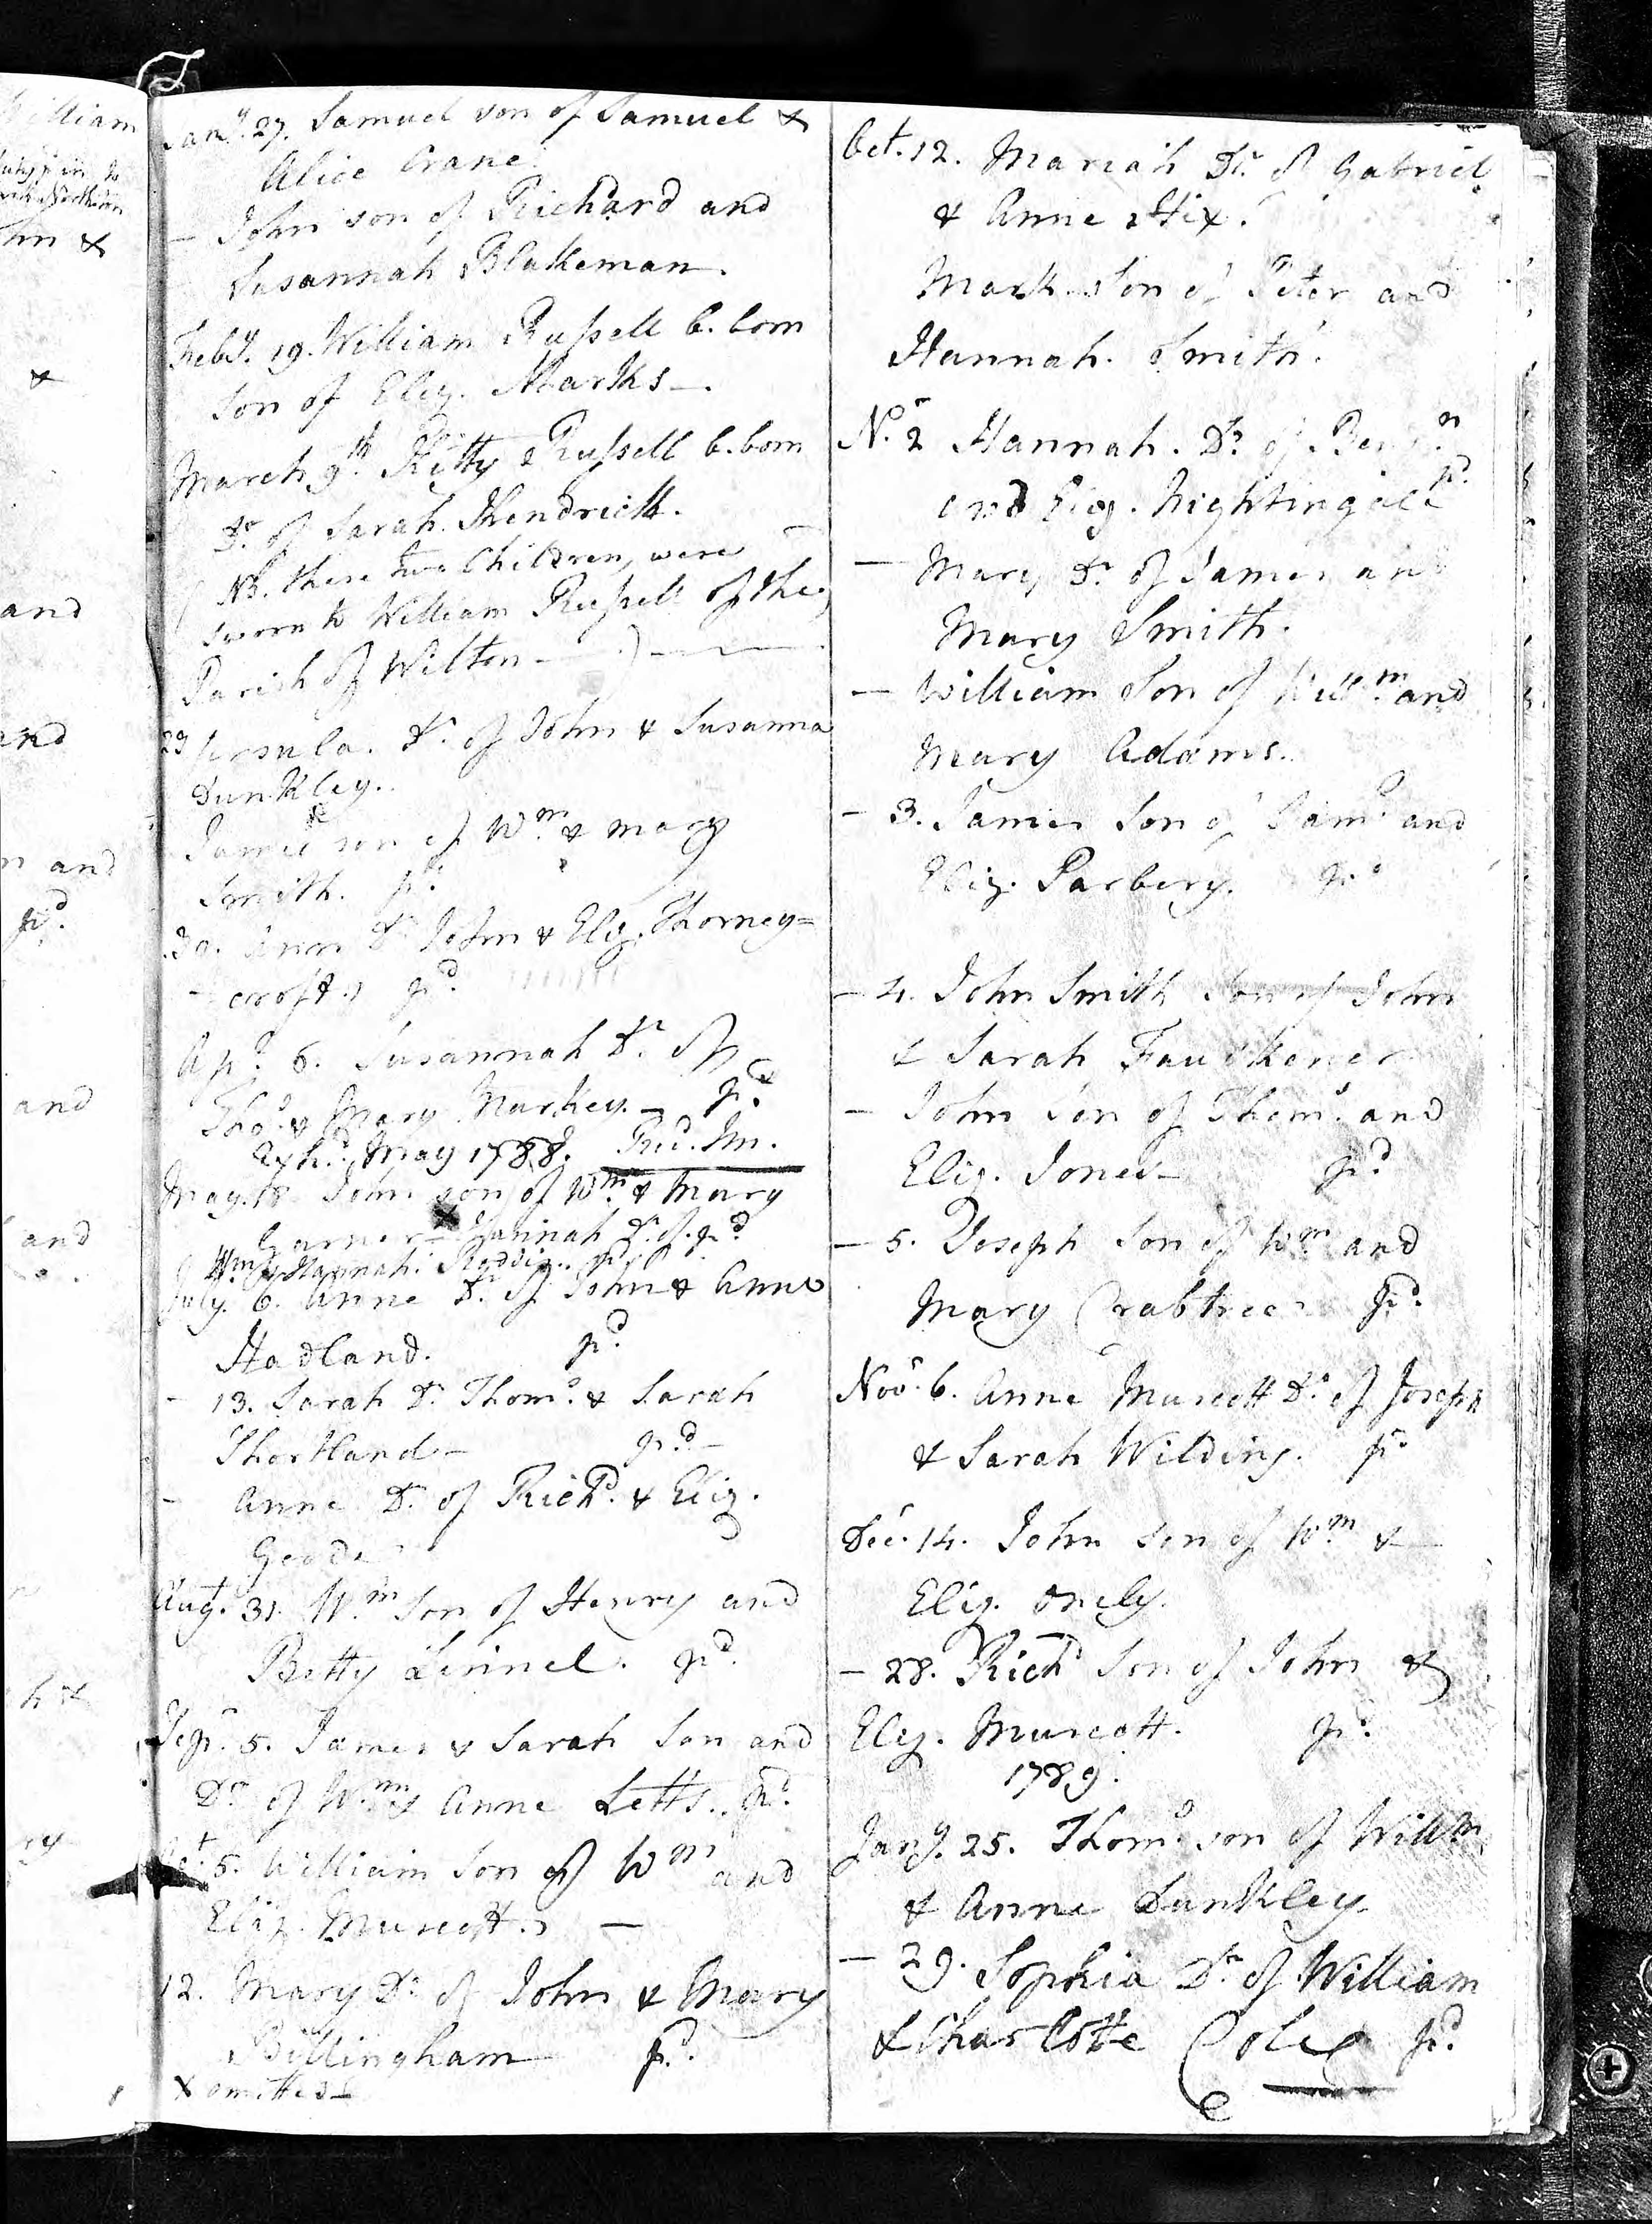 Jan.y 27. Samuel son of Samuel &
Alice Crane.
— John son of Richard and
Susannah Blakeman.
Feb.y 19. William Russell b. born
son of Eliz. Marks —.
March 9th Kitty Russell b. born
Dr of Sarah Kendrick.
(NB. these two Children, were
sworn to William Russell of the
Parish of Wilton — )
29 Ursula. Dr. of John & Susanna
Dunkley.
son of Wm. & mary
Smith. pd.
30. Ann Dr John & Eliz. Thorney=
- croft. pd.
Apl. 6. Susannah Dr. of
Thos. & Mary Markey. — pd.
Exh.d May 1788.
May. 18 John son of Wm. & Mary
Garner — Hannah Dr. of pd
Wm. & Hannah. pd.
July. 6. Anne Dr. of John & Anne
Hadland. pd.
- 13. Sarah Dr. Thom.s & Sarah
Shortland — pd. —
- Anne Dr. of Rich.d & Eliz.
Goode
Augt. 31. Wm. Son of Henry and
Betty Linnel. pd.
Sepr. 5. James & Sarah Son and
Dr. of Wm. & Anne Letts. pd.
Oct. 5. William Son of Wm and
Eliz. Murcott. —
12. Mary Dr. of John & Mary
Billingham pd.
x omitted —
Oct. 12. Mariah Dr. of Gabriel
& Anne Hix.
Mark Son of Peter and
Hannah. Smith.
No. 2 Hannah. Dr. of Benj.n
and Eliz. Nightingale pd.
— Mary Dr. of James and
Mary Smith.
— William Son of Willm. and
Mary Adams.
- 3. James Son of Sam.l and
Eliz. Parbery. pd
— 4. John Smith Son of John
& Sarah Faulkener
— John Son of Thom.s and
Eliz. Jones — pd
— 5. Joseph Son of Wm and
Mary Crabtree pd.
Novr. 6. Anne Murcott Dr. of Joseph
& Sarah Wilding. pd
Decr. 14. John Son of Wm. &
Eliz. Onely.
— 28. Richd Son of John &
Eliz. Murcott. pd.
1789.
Jany. 25. Thom.s son of Willm
& Anne Dunkley.
— 29. Sophia Dr. of William
& Charlotte Coles pd.